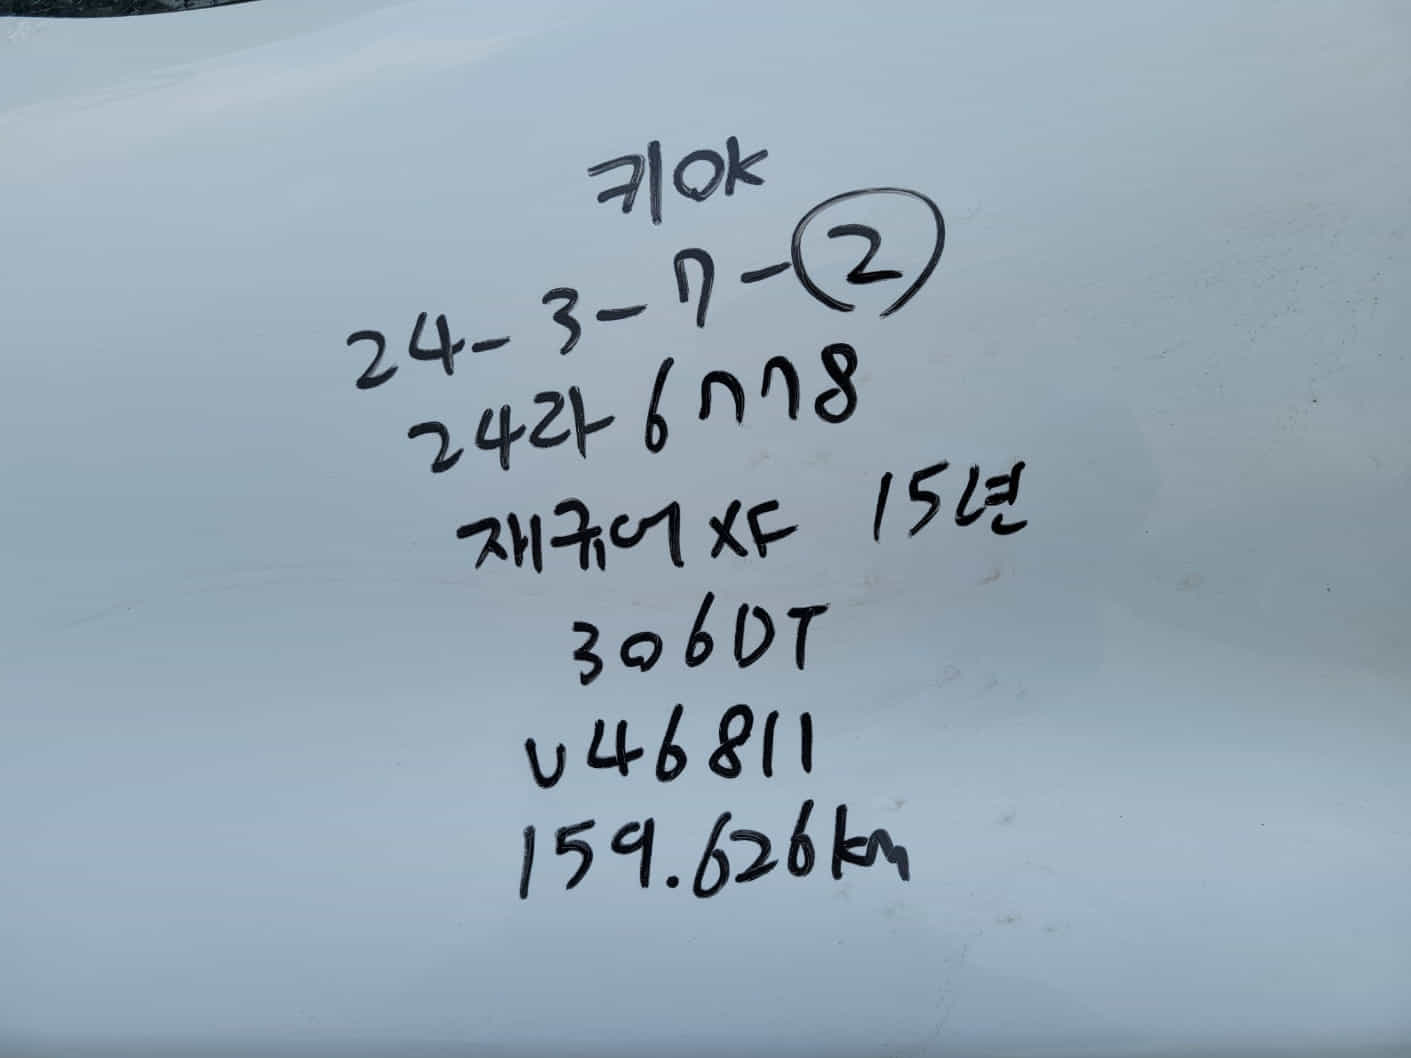 키OK
24-3-7-②
24라 6778
재규어 XF 15년
306DT
U46811
159.626km